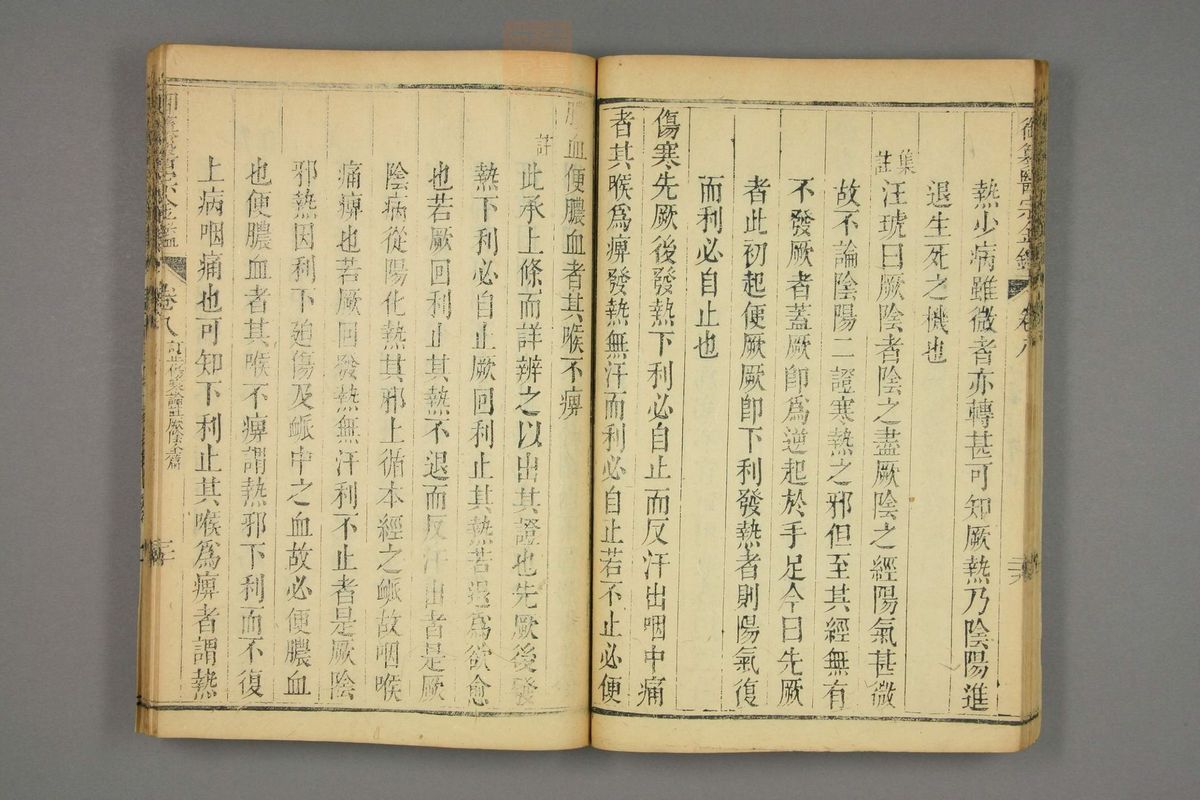 御纂醫宗金鑑 卷八
熱少病雖微者亦轉甚可知厥熱乃陰陽進
退生死之機也
集註
汪琥曰厥陰者陰之盡厥陰之經陽氣甚微
故不論陰陽二證寒熱之邪但至其經無有
不發厥者蓋厥卽為逆起於手足今曰先厥
者此初起便厥厥卽下利發熱者則陽氣復
而利必自止也
傷寒先厥後發熱下利必自止而反汗出咽中痛
者其喉為痹發熱無汗而利必自止若不止必便
膿血便膿血者其喉不痹
註
此承上條而詳辨之以出其證也先厥後發
熱下利必自止厥回利止其熱若退為欲愈
也若厥回利止其熱不退而反汗出者是厥
陰病從陽化熱其邪上循本經之脈故咽喉
痛痹也若厥回發熱無汗利不止者是厥陰
邪熱因利下廹傷及脈中之血故必便膿血
也便膿血者其喉不痹謂熱邪下利而不復
上病咽痛也可知下利止其喉為痹者謂熱
醫宗金鑑 卷八